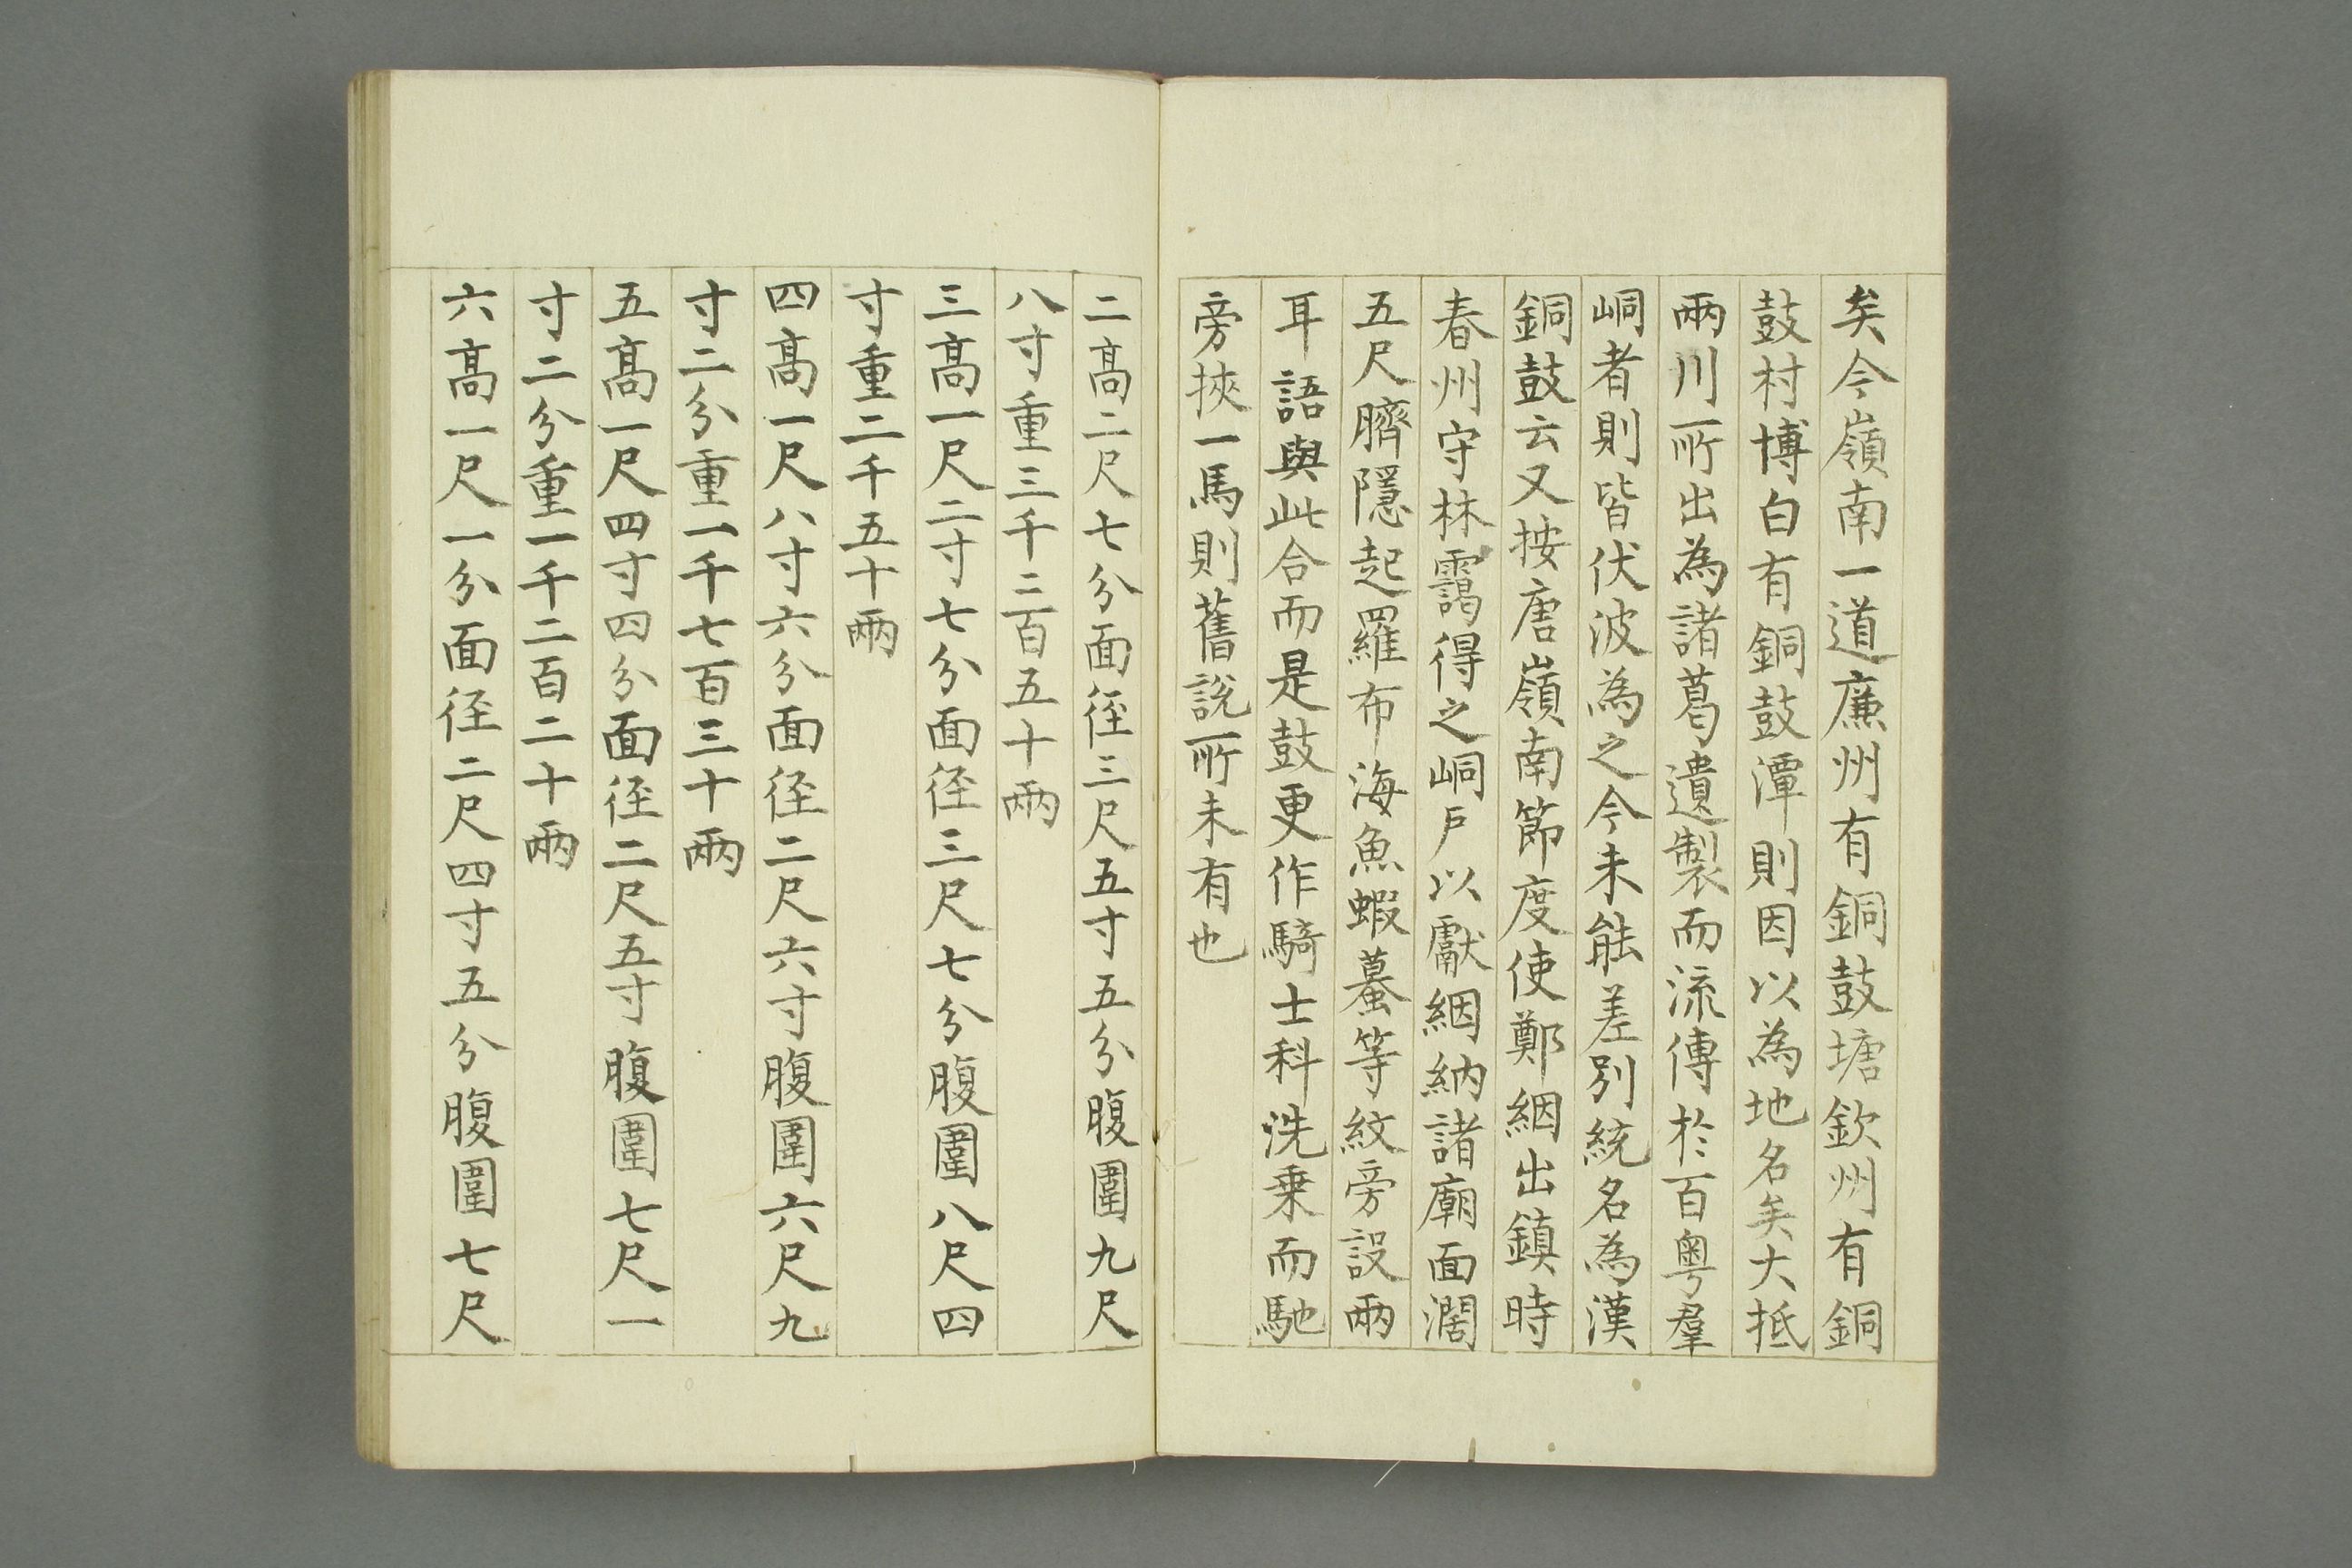 矣今嶺南一道廉州有銅鼓塘欽州有銅
鼓村博白有銅鼓潭則因以為地名矣大抵
兩川所出為諸葛遺製而流傳於百粵羣
峒者則皆伏波為之今未能差別統名為漢
銅鼓云又按唐嶺南節度使鄭絪出鎮時
春州守林靄得之峒戶以獻絪納諸廟面濶
五尺臍隱起羅布海魚蝦蟇等紋旁設兩
耳語與此合而是鼓更作騎士科洗乗而馳
旁挾一馬則舊說所未有也
二髙二尺七分面徑三尺五寸五分腹圍九尺
八寸重三千二百五十兩
三髙一尺二寸七分面徑三尺七分腹圍八尺四
寸重二千五十兩
四髙一尺八寸六分面徑二尺六寸腹圍六尺九
寸二分重一千七百三十兩
五髙一尺四寸四分面徑二尺五寸腹圍七尺一
寸二分重一千二百二十兩
六髙一尺一分面徑二尺四寸五分腹圍七尺